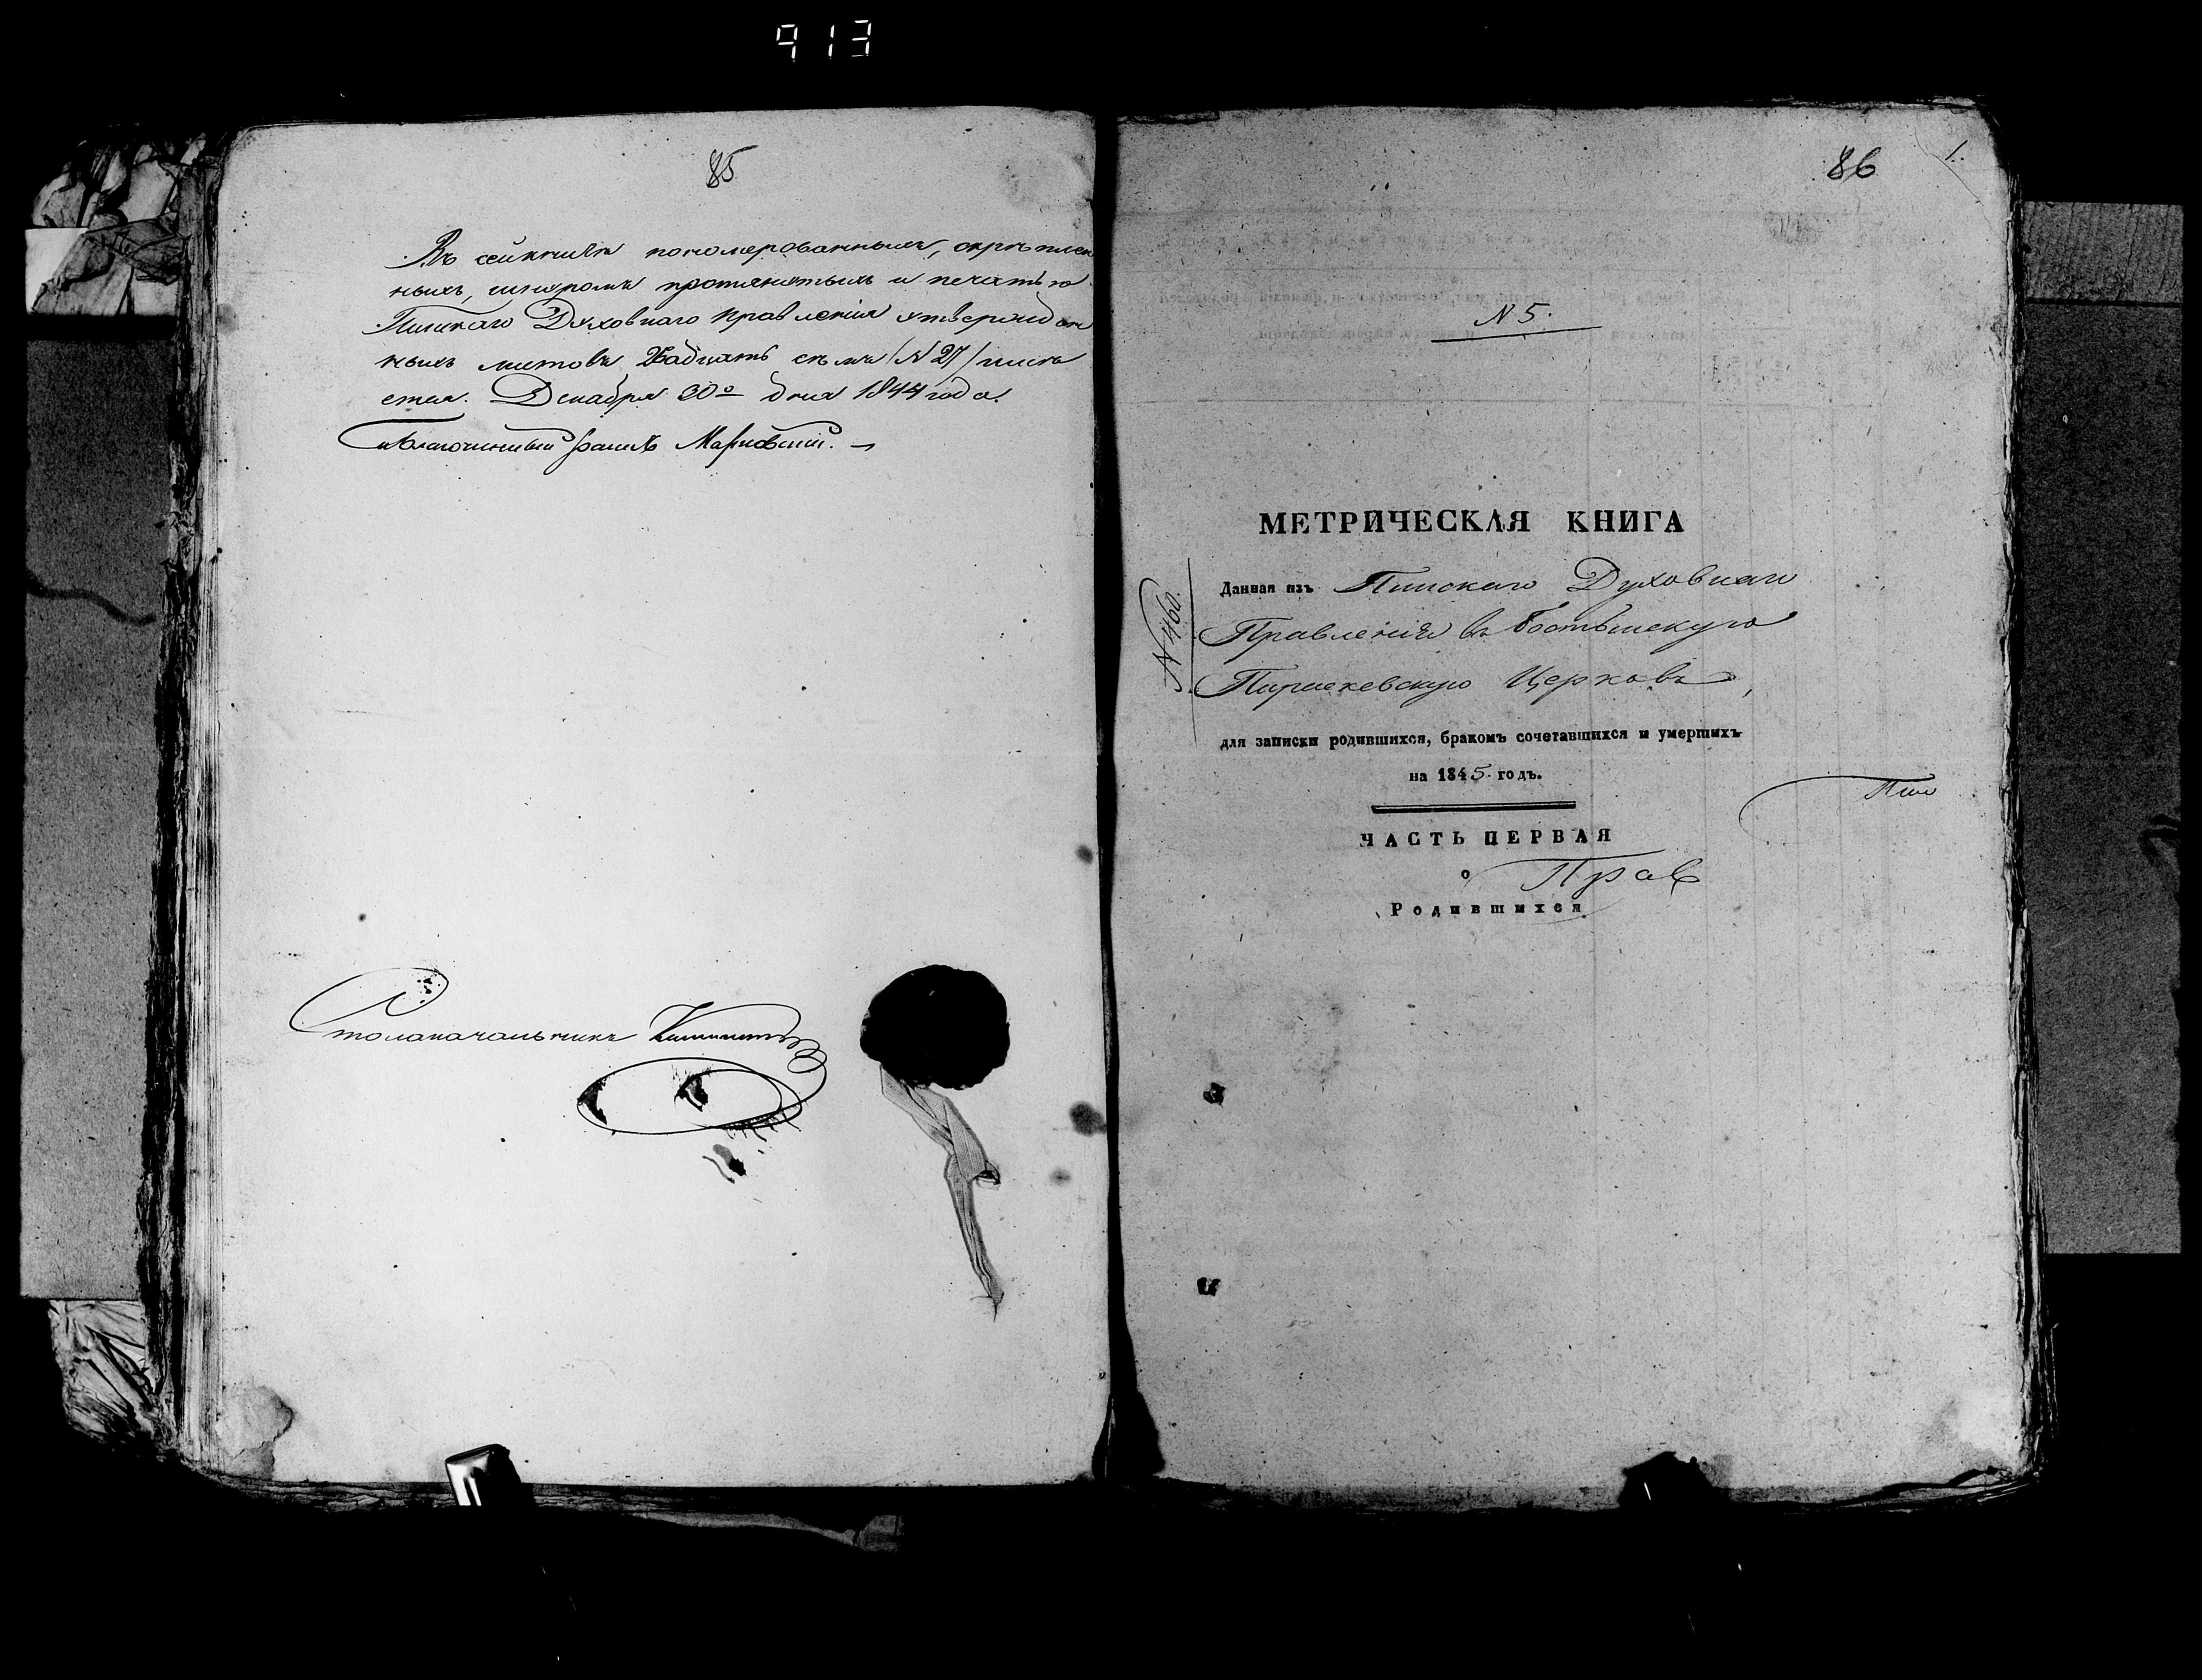 913
85
Въ сей книгѣ пономерованныхъ, скрѣплен
ныхъ, шнуромъ протянутыхъ и печатью
Пинскаго Духовнаго Правленія утвержден
ныхъ листовъ двадцать семь /N 27/ числи
тся. Декабря 30го дня 1844 года.
Благочинный Марковскій.
Столоначальникъ
86
1.
N 5.
МЕТРИЧЕСКАЯ КНИГА
N 460.
Данная изъ Пинскаго Духовнаго
Правленія въ Бостынскую
Параскевскую Церковь,
для записки родившихся, бракомъ сочетавшихся и умершихъ
на 1845. годъ.
Пин
ЧАСТЬ ПЕРВАЯ
о Прав
Родившихся